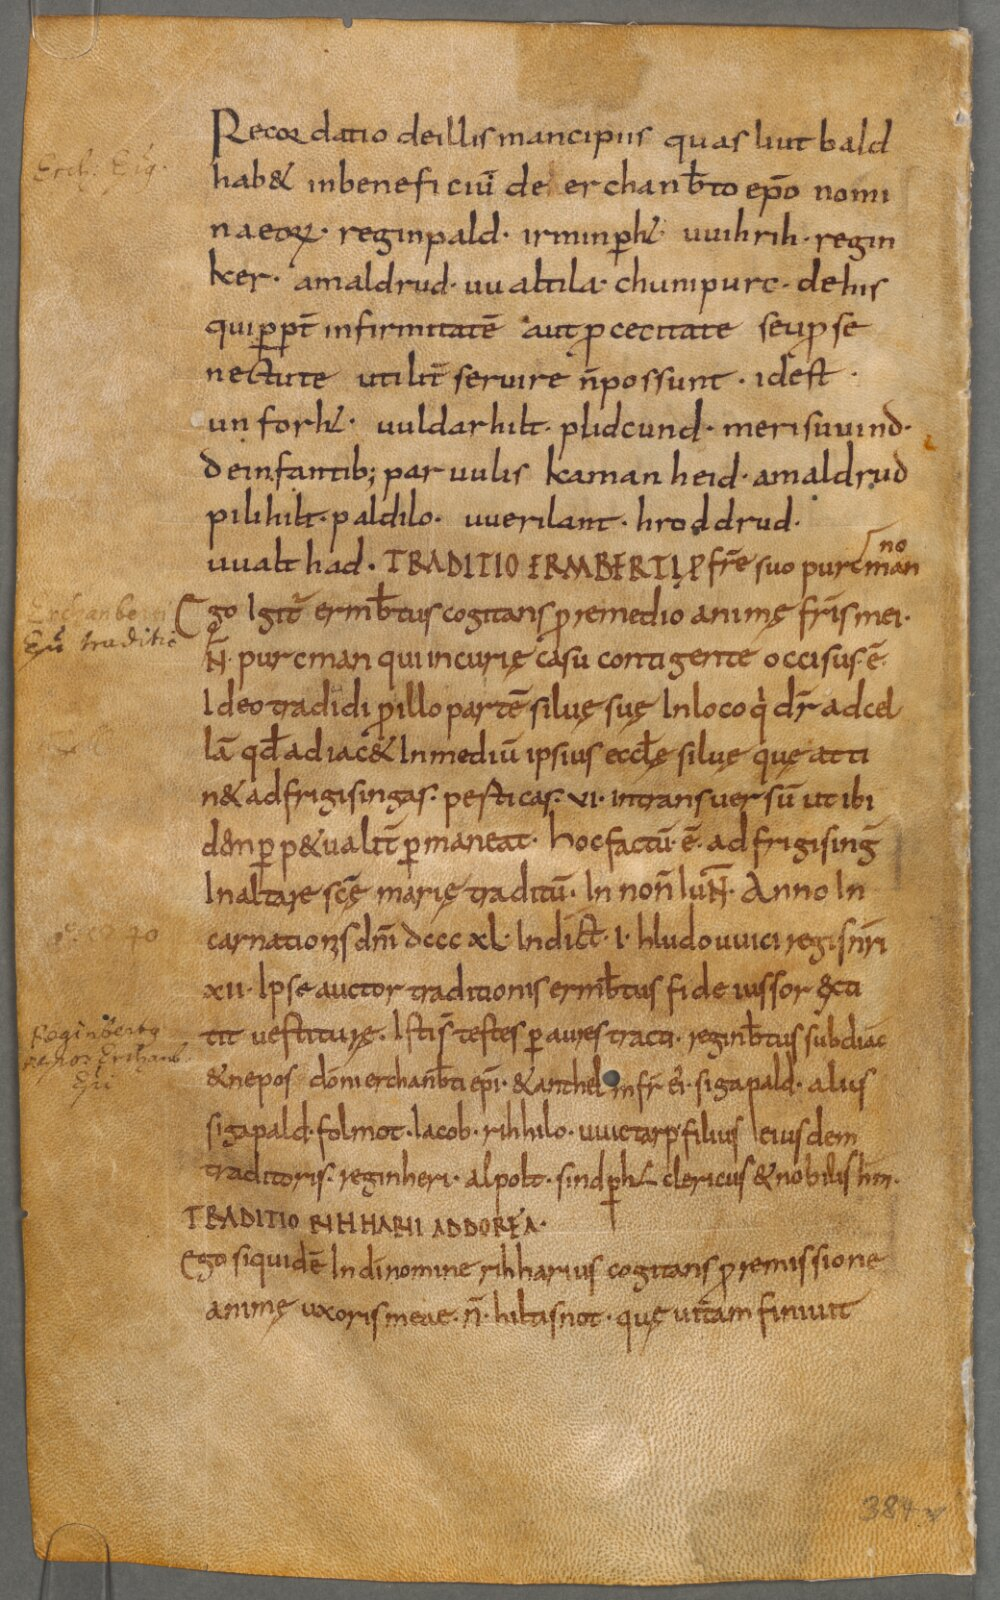 Recordatio deillis mancipiis quas liutbald
hab& inbeneficiū de erchanb̄to ep̄o nomi
na eoꝝ · reginpald · irminꝑh̷t · uuihrih · regin
ker · amaldrud · uualtila · chunipurc · dehis
qui ꝑpt̄ infirmitatē aut ꝓ cecitate seu ꝓ se
nectute utilit̄ seruire n̄ possunt · idest ·
unforh̷t · uuldarhilt · plidcund · merisuuind ·
deinfantib; paruulis kaman heid · amaldrud
pilihilt · paldilo · uuerilant · hroddrud ·
uualthad · TRADITIO ERMBERTI ꝓ fr̄e suo purcmanno
Ego Igit̄ ermb̄tus cogitans ꝓ remedio animę fr̄is mei ·
N̄ · purcman qui incurię casu contigente occisus · ē ·
Ideo tradidi ꝓ illo partē siluę suę In loco q̇ dr̄ adcel
lā qd̄ adiac& In mediū ipsius eccl̄ę siluę quę atti
n& ad frigisingas · perticas · VI · intransuersū ut ibi
d&m ꝑp&ualit̄ ꝑmaneat · hoc factū · ē · ad frigisinḡ
In altare scę̄ marię traditū · In non̄ IuN̄ · Anno In
carnationis dn̄i dcccxl · Indict · I · hludouuici regis nr̄i
xii · Ipse auctor traditionis ermb̄tus fideiussor &cti
tit uestiturę · Isti s̄ testes ꝑ aures tracti · reginb̄tus subdiac
& nepos dom̄ erchanb̄ti ep̄i · & anthelm fr̄ ei · sigapald · alius
sigapald · folmot · Iacob · rihhilo · uuictarp filius eiusdem
traditoris · reginheri · alpolt · sindꝑh̷t clericus & nobilis hm̄ ·
TRADITIO RIHHARII AD DORFA ·
Ego siquidē In dī nomine rihharius cogitans ꝓ remissione
animę uxoris meae · n̄ · hiltisnot · quę uitam finiuit
Erch. Eṗg.
Erchanberti
Ep̄i traditio
840
Reginbertq
nepos Erchanb
Ep̄i
384 v